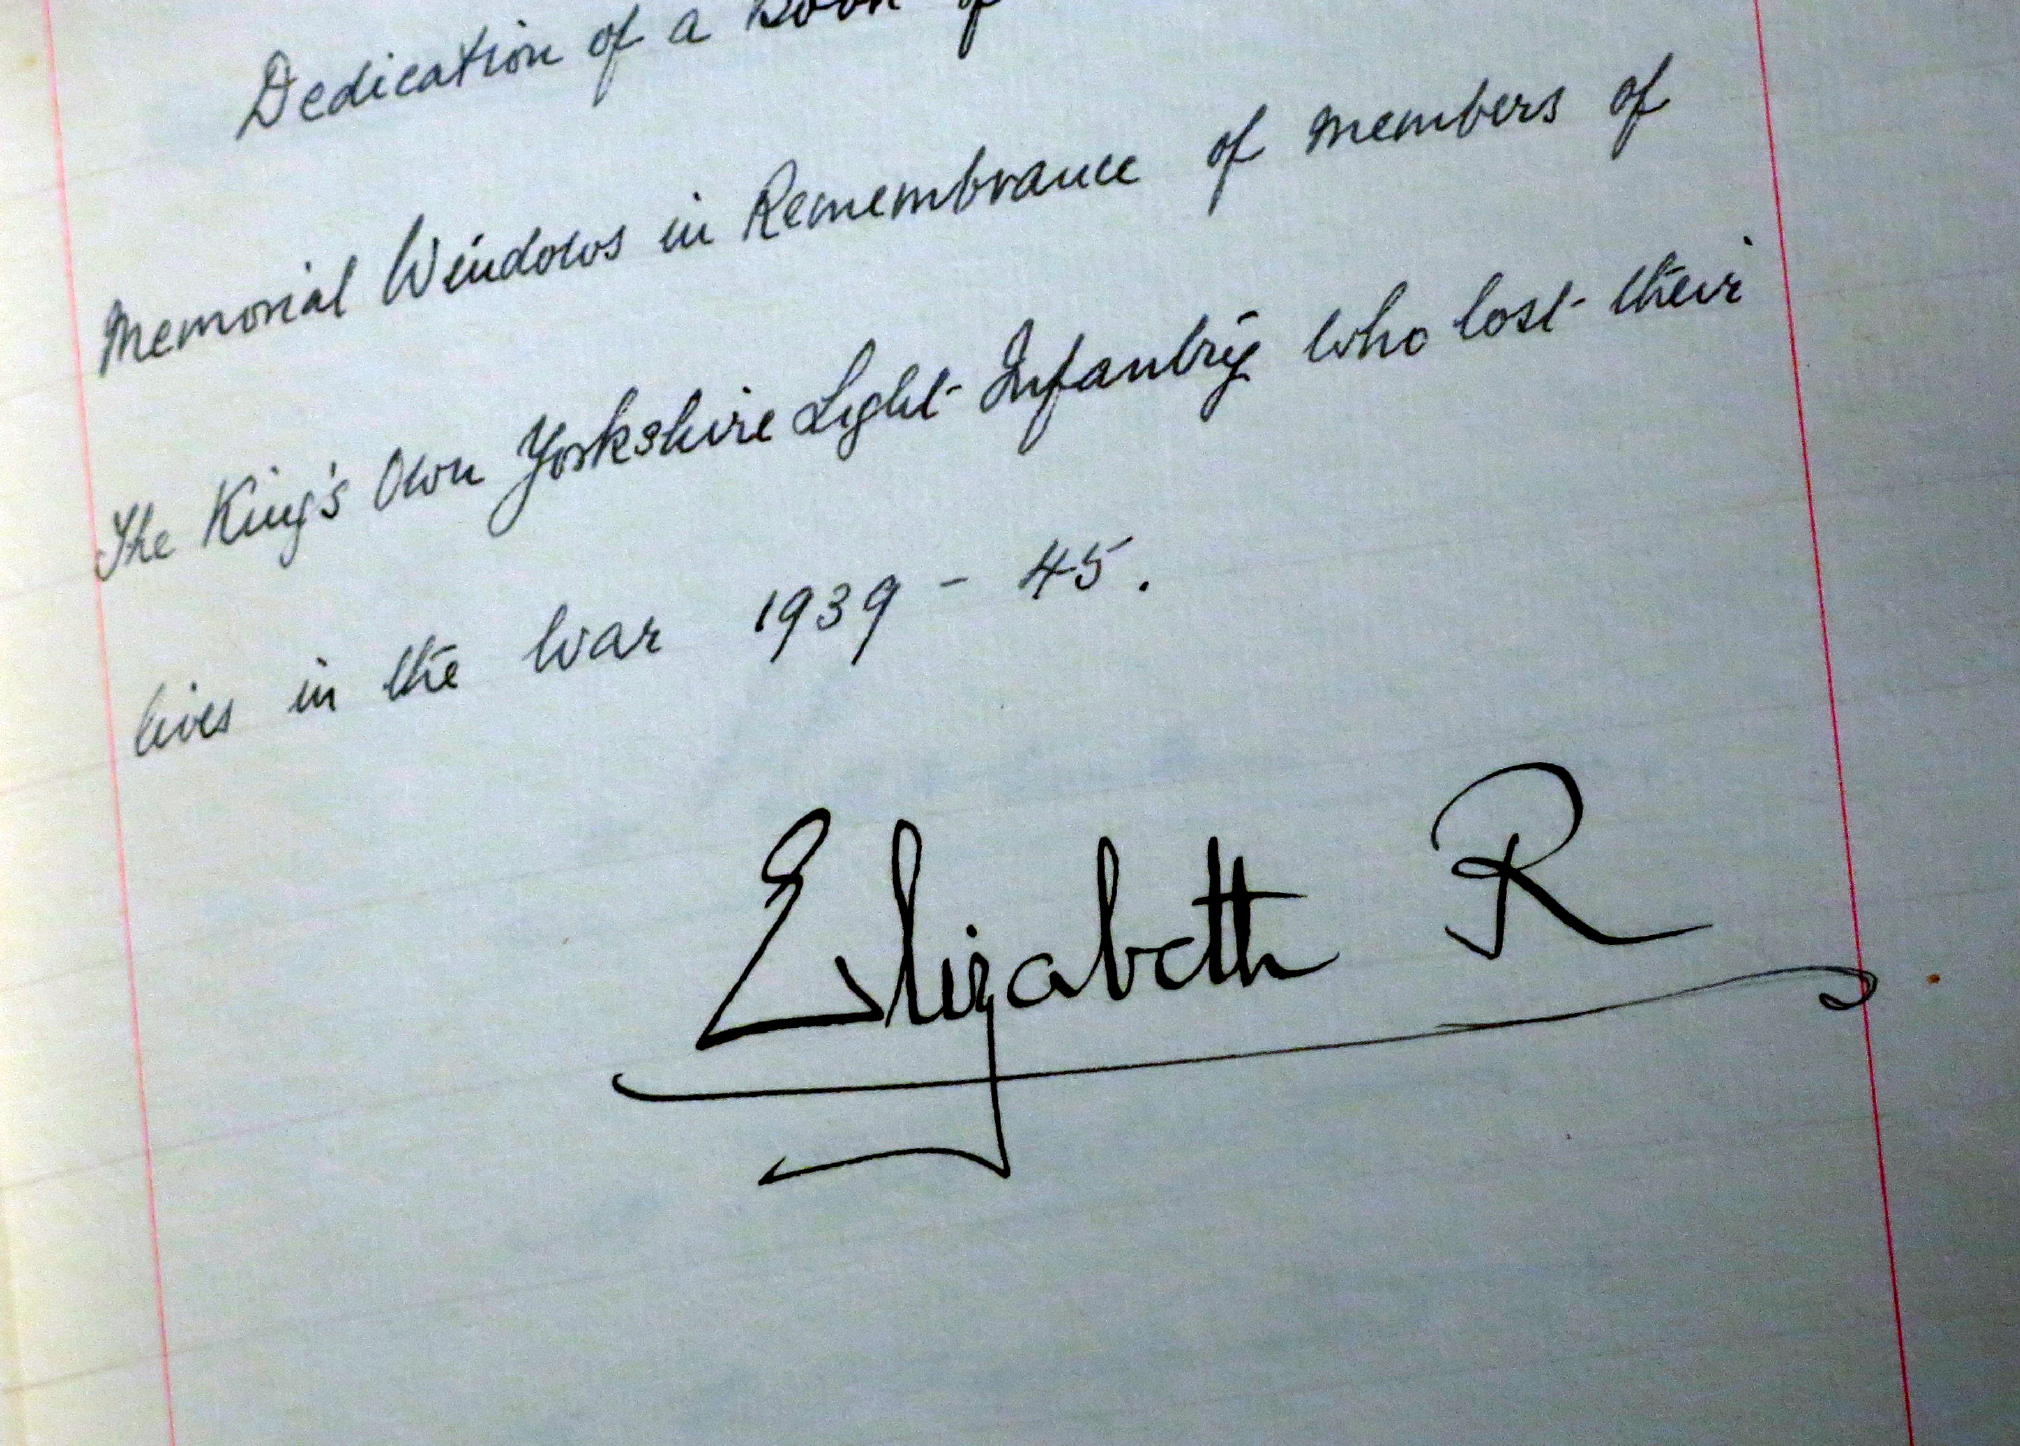 Dedication of a Book of
Memorial Windows in Remembrance of members of
The King's Own Yorkshire Light Infantry who lost their
lives in the War 1939 - 45.
Elizabeth R